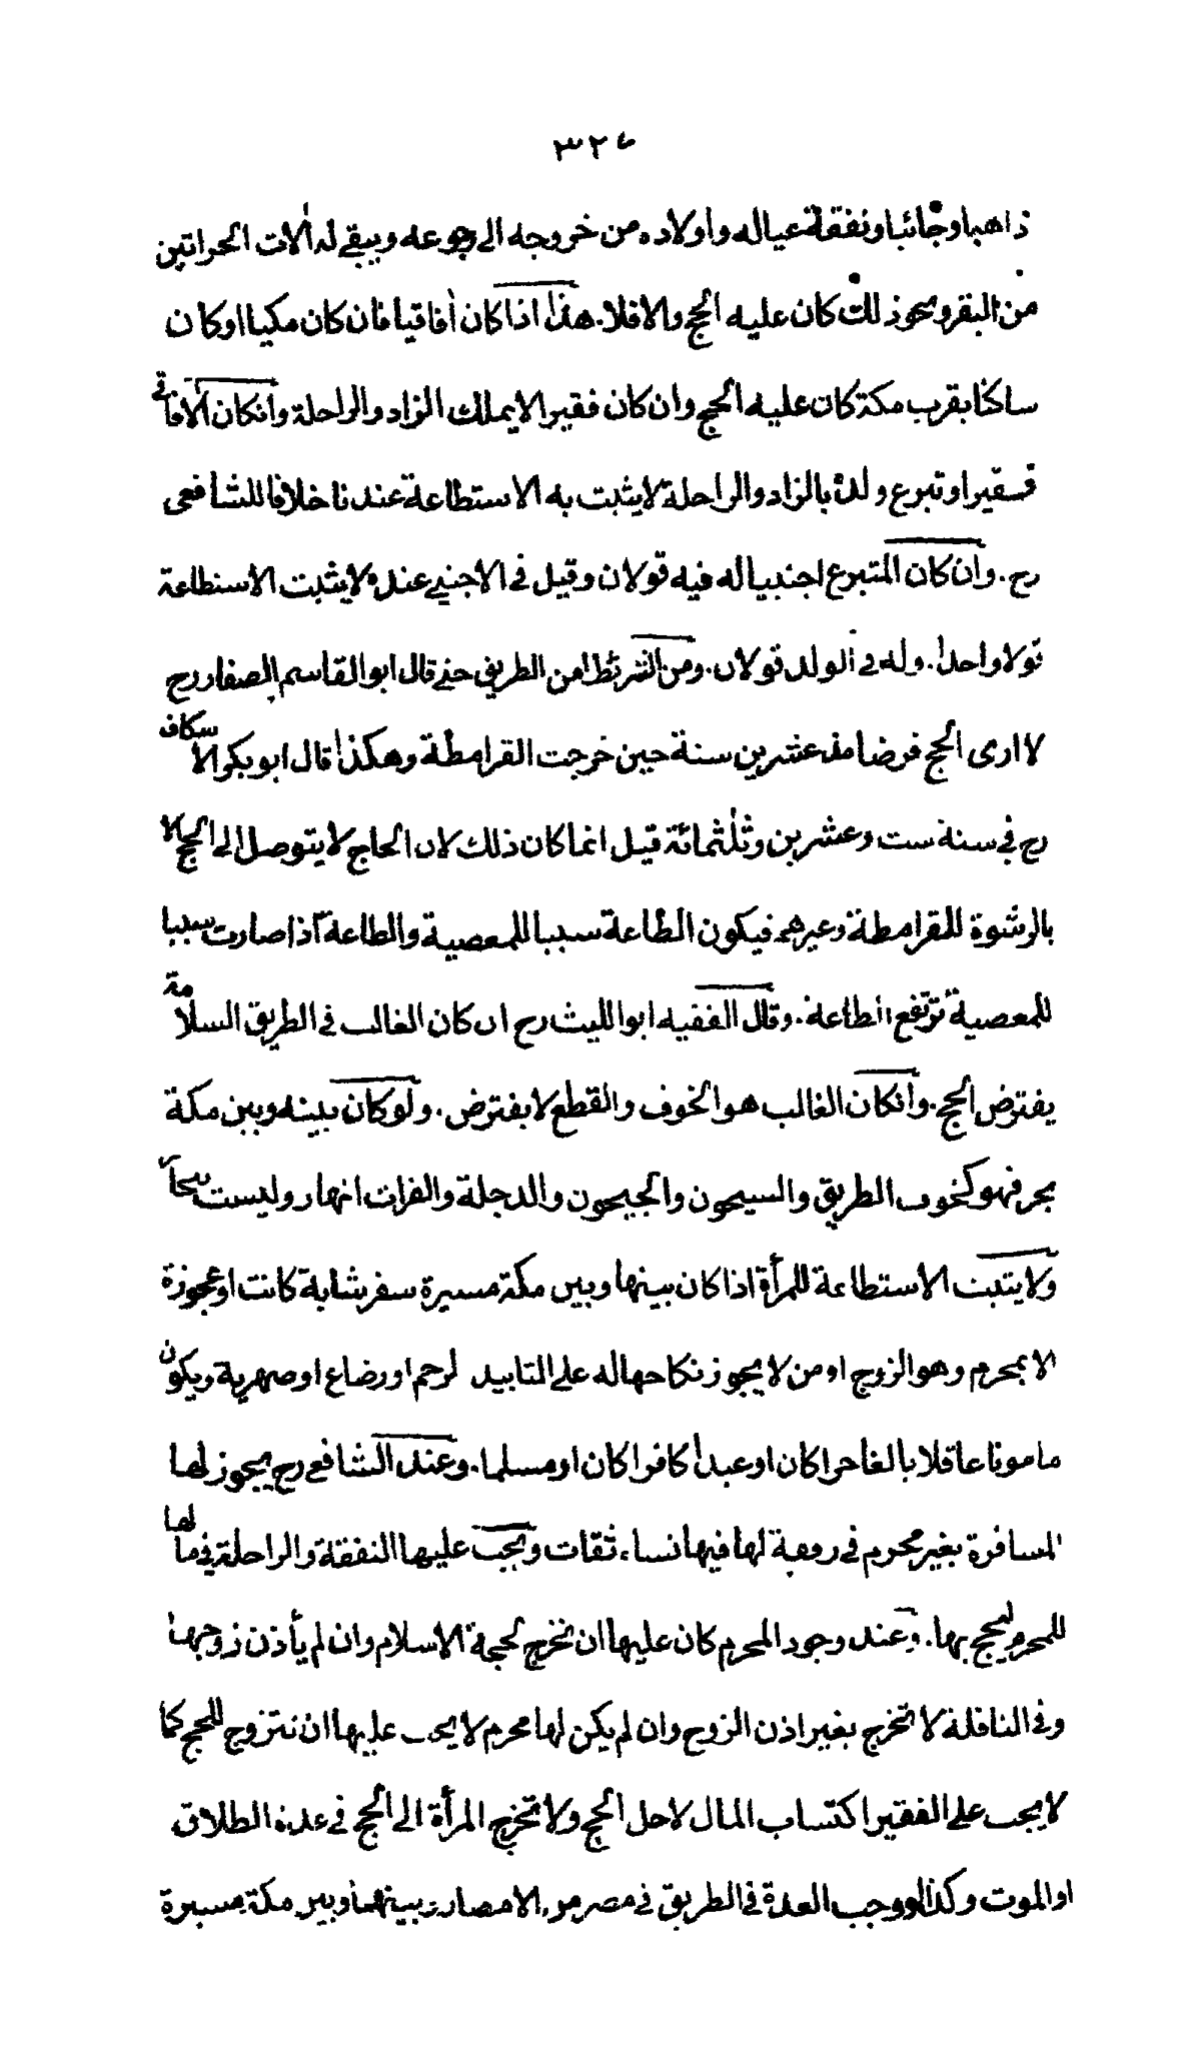 ٣٢٤
ذاهبا وجائيا ونفقة عياله واولاده من خروجه الى رجوعه ويبقى له الات الحراثين
من البقر ونحو ذلك كان عليه الحج والا فلا. هذا اذا كان أفاقيا فان كان مكيا او كان
ساكنا بقرب مكة كان عليه الحج وان كان فقيرا لا يملك الزاد والراحلة وانكان الافاقى
فقيرا وتبرع ولده بالزاد والراحلة لا يثبت به الاستطاعة عندنا خلافا للشافعى
رح. وان كان المتبرع اجنبيا له فيه قولان وقيل فى الاجنبى عنده لا يثبت الاستطاعة
قولا واحدا. وله فى الولد قولان. ومن الشرائط امن الطريق حتى قال ابو القاسم الصفار رح
لا ارى الحج فرضا مذ عشرين سنة حين خرجت القرامطة وهكذا قال ابو بكر الاسكاف
رح فى سنة ست وعشرين وثلثمائة قيل انما كان ذلك لان الحاج لا يتوصل الى الحج الا
بالرشوة للقرامطة وغيرهم فيكون الطاعة سببا للمعصية والطاعة اذا صارت سببا
للمعصية ترتفع الطاعة. وقال الفقيه ابو الليث رح ان كان الغالب فى الطريق السلامة
يفترض الحج. وانكان الغالب هو الخوف والقطع لا يفترض. ولو كان بينه وبين مكة
بحر فهو كخوف الطريق والسيحون والجيحون والدجلة والفرات انهار وليست بحارا
ولا يثبت الاستطاعة للمرأة اذا كان بينها وبين مكة مسيرة سفر شابة كانت او عجوزة
الا بمحرم وهو الزوج او من لا يجوز نكاحها له على التابيد لرحم او رضاع او صهرية ويكون
مامونا عاقلا بالغا حرا كان او عبدا كافرا كان او مسلما. وعند الشافعى رح يجوز لها
المسافرة بغير محرم فى رفقة لها فيها نساء ثقات وتجب عليها النفقة والراحلة فى مالها
للمحرم ليحج بها. وعند وجود المحرم كان عليها ان تخرج لحجة الاسلام وان لم يأذن زوجها
وفى النافلة لا تخرج بغير اذن الزوج وان لم يكن لها محرم لا يجب عليها ان تتزوج للحج كما
لا يجب على الفقير اكتساب المال لاجل الحج ولا تخرج المرأة الى الحج فى عدة الطلاق
او الموت وكذا لو وجب العدة فى الطريق فى مصر من الامصار وبينها وبين مكة مسيرة